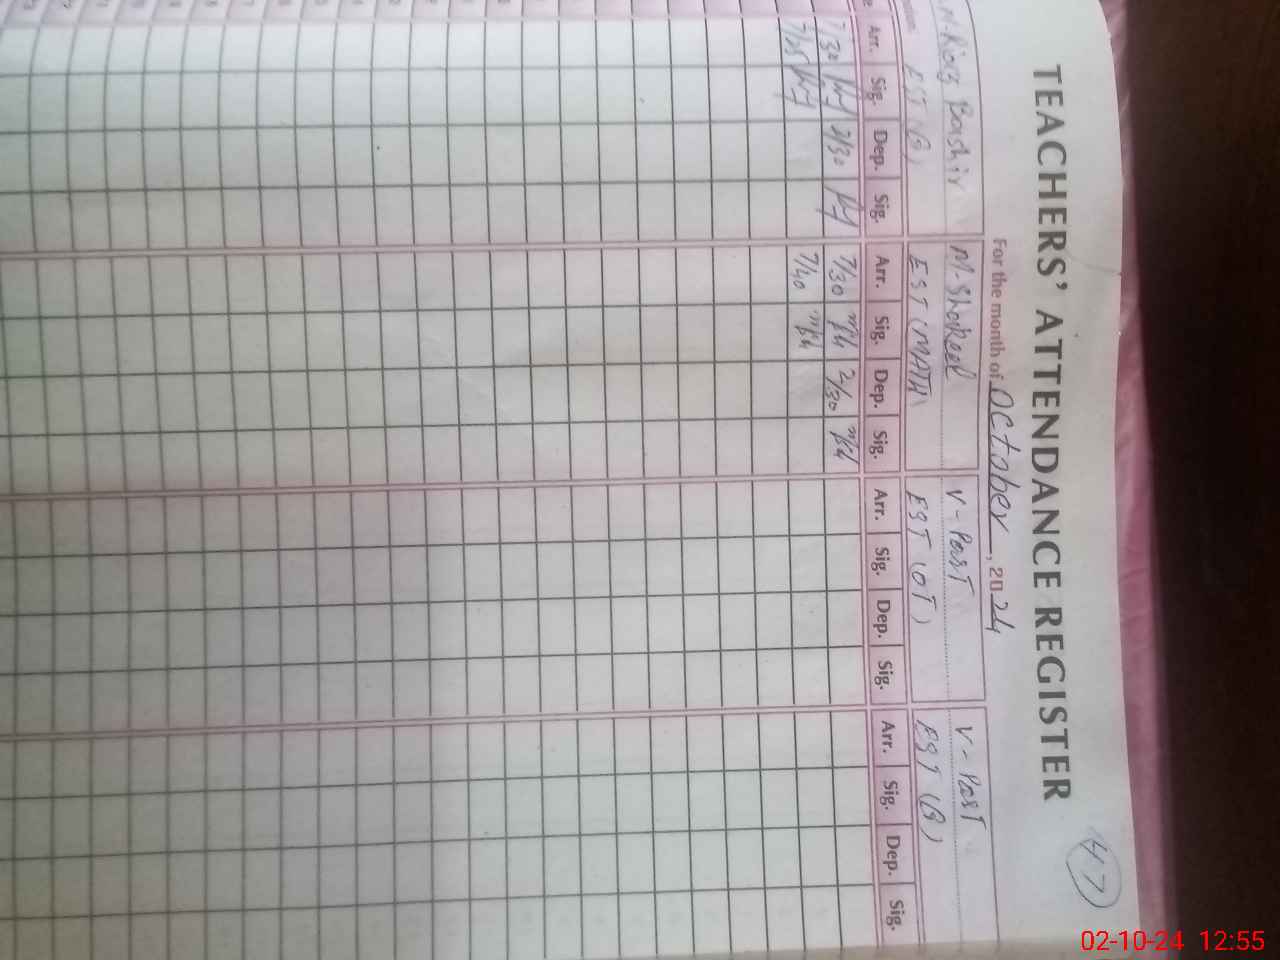 47
TEACHERS' ATTENDANCE REGISTER
For the month of October, 2024
Bashir M. Shakeel V-Post V-Post
EST (B) EST (MATH) EST (OT) EST (B)
Arr. Sig. Dep. Sig. Arr. Sig. Dep. Sig. Arr. Sig. Dep. Sig. Arr. Sig. Dep. Sig.
7/30 2/30 7/30 2/30
7/25 7/40
02-10-24 12:55